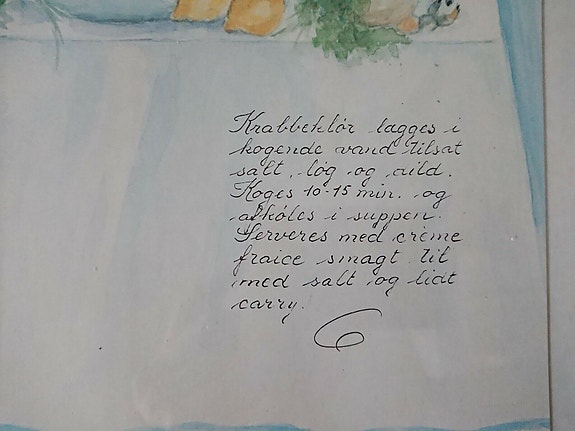 Krabbeklør lægges i
kogende vand tilsat
salt, løg og dild.
Koges 10-15 min. og
afkøles i suppen.
Serveres med creme
fraice smagt til
med salt og lidt
carry.